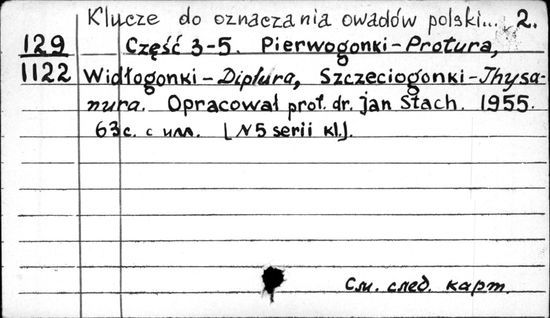 Klucze do oznaczania owadów polski... 2.
129 Część 3-5. Pierwogonki-Protura,
1122 Widłogonki-Diplura, Szczeciogonki-Thysa-
nura. Opracował prof. dr. jan Stach. 1955.
63с. с илл. [N5 serii kl].
См. след. карт.